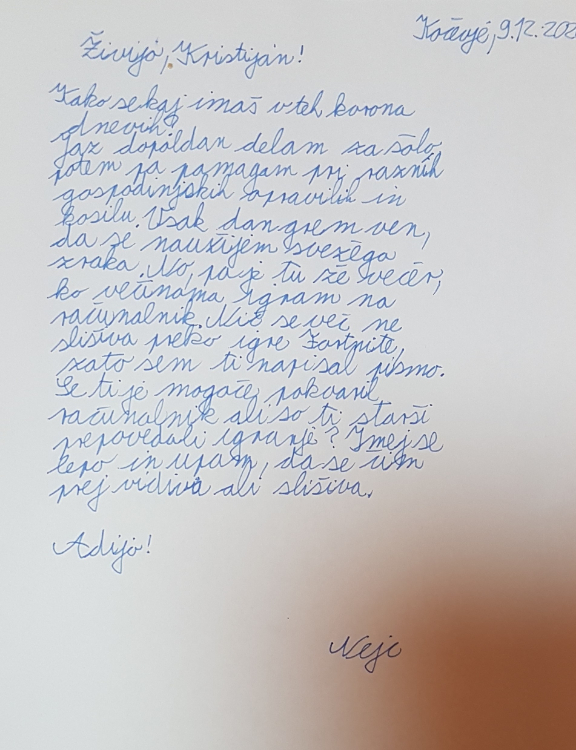 Kočevje, 9.12.202
Živijo, Kristijan!
Kako se kaj imaš v teh korona
dnevih?
Jaz dopoldan delam za šolo,
potem pa pomagam pri raznih
gospodinjskih opravilih in
kosilu. Vsak dan grem ven,
da se naužijem svežega
zraka. No, pa je tu že večer,
ko večinama igram na
računalnik. Nič se več ne
slišiva preko igre Fortnite,
zato sem ti napisal pismo.
Se ti je mogoče pokvaril
računalnik ali so ti starši
prepovedali igranje? Imej se
lepo in upam, da se čim
prej vidiva ali slišiva.
Adijo!
Nejc